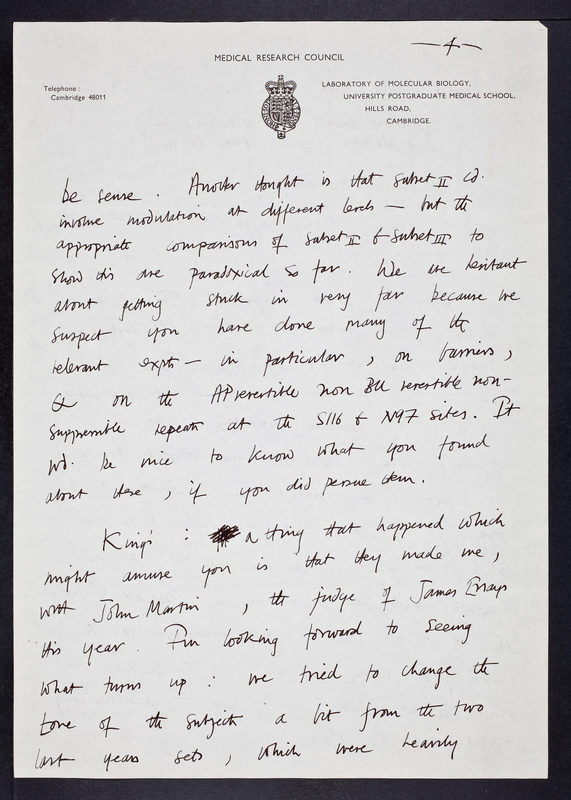 — 4 —
MEDICAL RESEARCH COUNCIL
Telephone:
Cambridge 48011
LABORATORY OF MOLECULAR BIOLOGY,
UNIVERSITY POSTGRADUATE MEDICAL SCHOOL,
HILLS ROAD,
CAMBRIDGE.
be sense. Another thought is that subset II cd.
involve modulation at different levels — but the
appropriate comparisons of subset II & subset III to
show this are paradoxical so far. We are hesitant
about getting stuck in very far because we
suspect you have done many of the
relevant expts — in particular, on barriers,
& on the AP revertible non BU revertible non-
suppressible repeats at the S116 & N97 sites. It
wd. be nice to know what you found
about these, if you did persue them.
King's : a thing that happened which
might amuse you is that they made me,
with John Martin, the judge of James Essays
this year. I'm looking forward to seeing
what turns up : we tried to change the
tone of the subjects a bit from the two
last years sets, which were heavily